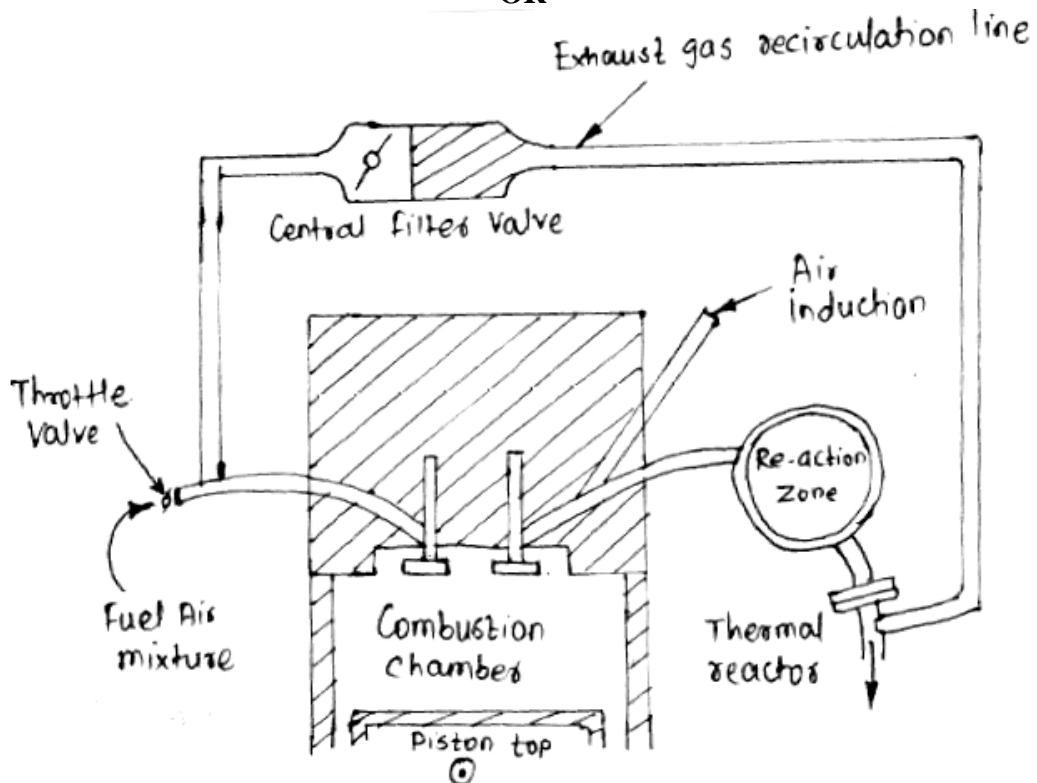 OR
Exhaust gas recirculation line
Central filter valve
Air
induction
Throttle
valve
Re-action
Zone
Fuel Air
mixture
Combustion
chamber
Thermal
reactor
Piston top